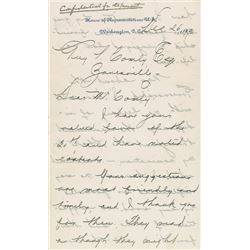 Confidential for the present
House of Representatives U.S.
Washington, D.C.
Esq
Dear Mr.
I have your
valued favor of the
and have noted
contents
Your suggestions
are most friendly and
timely and I thank you
for them They read
as though they might